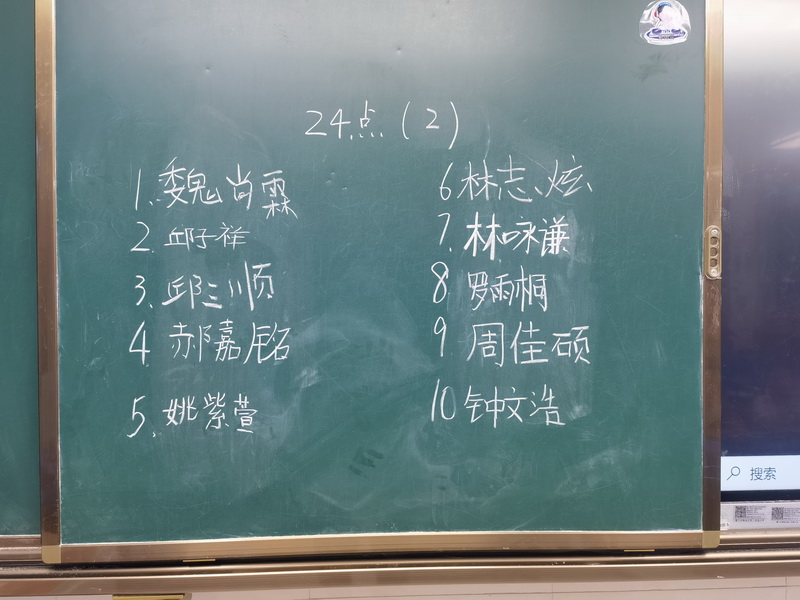 24点(2)
1、魏尚霖
2.邱子祥
3、邱三顺
4、郝嘉铭
5、姚紫萱
6林志炫
7.林咏谦
8、罗雨桐
9、周佳硕
10钟文浩
搜索